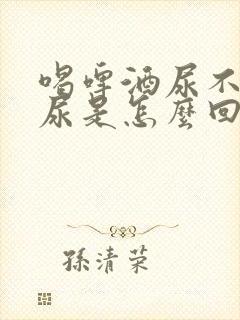 喝啤酒尿不
尿是怎麼回
孫清荣